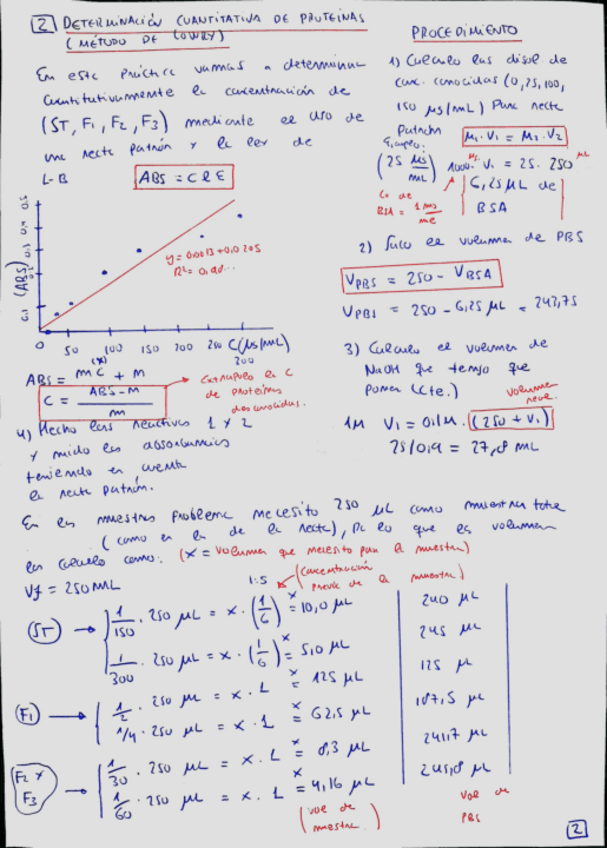 2 DETERMINACIÓN CUANTITATIVA DE PROTEÍNAS
(MÉTODO DE LOWRY)
En esta práctica vamos a determinar
cuantitativamente la concentración de
(ST, F1, F2, F3) mediante el uso de
una recta patrón y la ley de
L-B
ABS = C l E
(ABS)
y = 0,0013 + 0,0205
R² = 0,99...
0 50 100 150 200 250 C(μg/mL)
(x)
200
ABS = mC + n
C = ABS - n / m
Extrapolo la C
de proteínas
desconocidas.
4) Hecho las reactivos 1 y 2
y mido las absorbancias
teniendo en cuenta
la recta patrón.
PROCEDIMIENTO
1) Calculo las disol de
conc. conocidas (0, 25, 100,
150 μg/mL) para recta
patrón
Ejemplo:
M1·V1 = M2·V2
(25 μg/mL) 1000·V1 = 25·250 μL
Co de
BSA = 1 mg/mL
6,25 μL de
BSA
2) Saco el volumen de PBS
VPBS = 250 - VBSA
VPBS = 250 - 6,25 μL = 243,75
3) Calculo el volumen de
NaOH que tengo que
poner (cte.)
volumen
1M V1 = 0,1M · (250 + V1)
25/0,9 = 27,8 mL
En las muestras problema necesito 250 μL como muestra total
(como en la de la recta), por lo que el volumen
las calculo como: (x = volumen que necesito para la muestra)
Vf = 250 mL
1:5
(concentración
previa de la muestra)
ST → 1/150 · 250 μL = x · (1/6) x = 10,0 μL 240 μL
1/300 · 250 μL = x · (1/6) x = 5,0 μL 245 μL
F1 → 1/2 · 250 μL = x · 1 x = 125 μL 125 μL
1/4 · 250 μL = x · 1 x = 62,5 μL 187,5 μL
F2 y F3 → 1/30 · 250 μL = x · 1 x = 8,3 μL 241,7 μL
1/60 · 250 μL = x · 1 x = 4,16 μL 245,8 μL
(vol de
muestra)
vol de
PBS
2